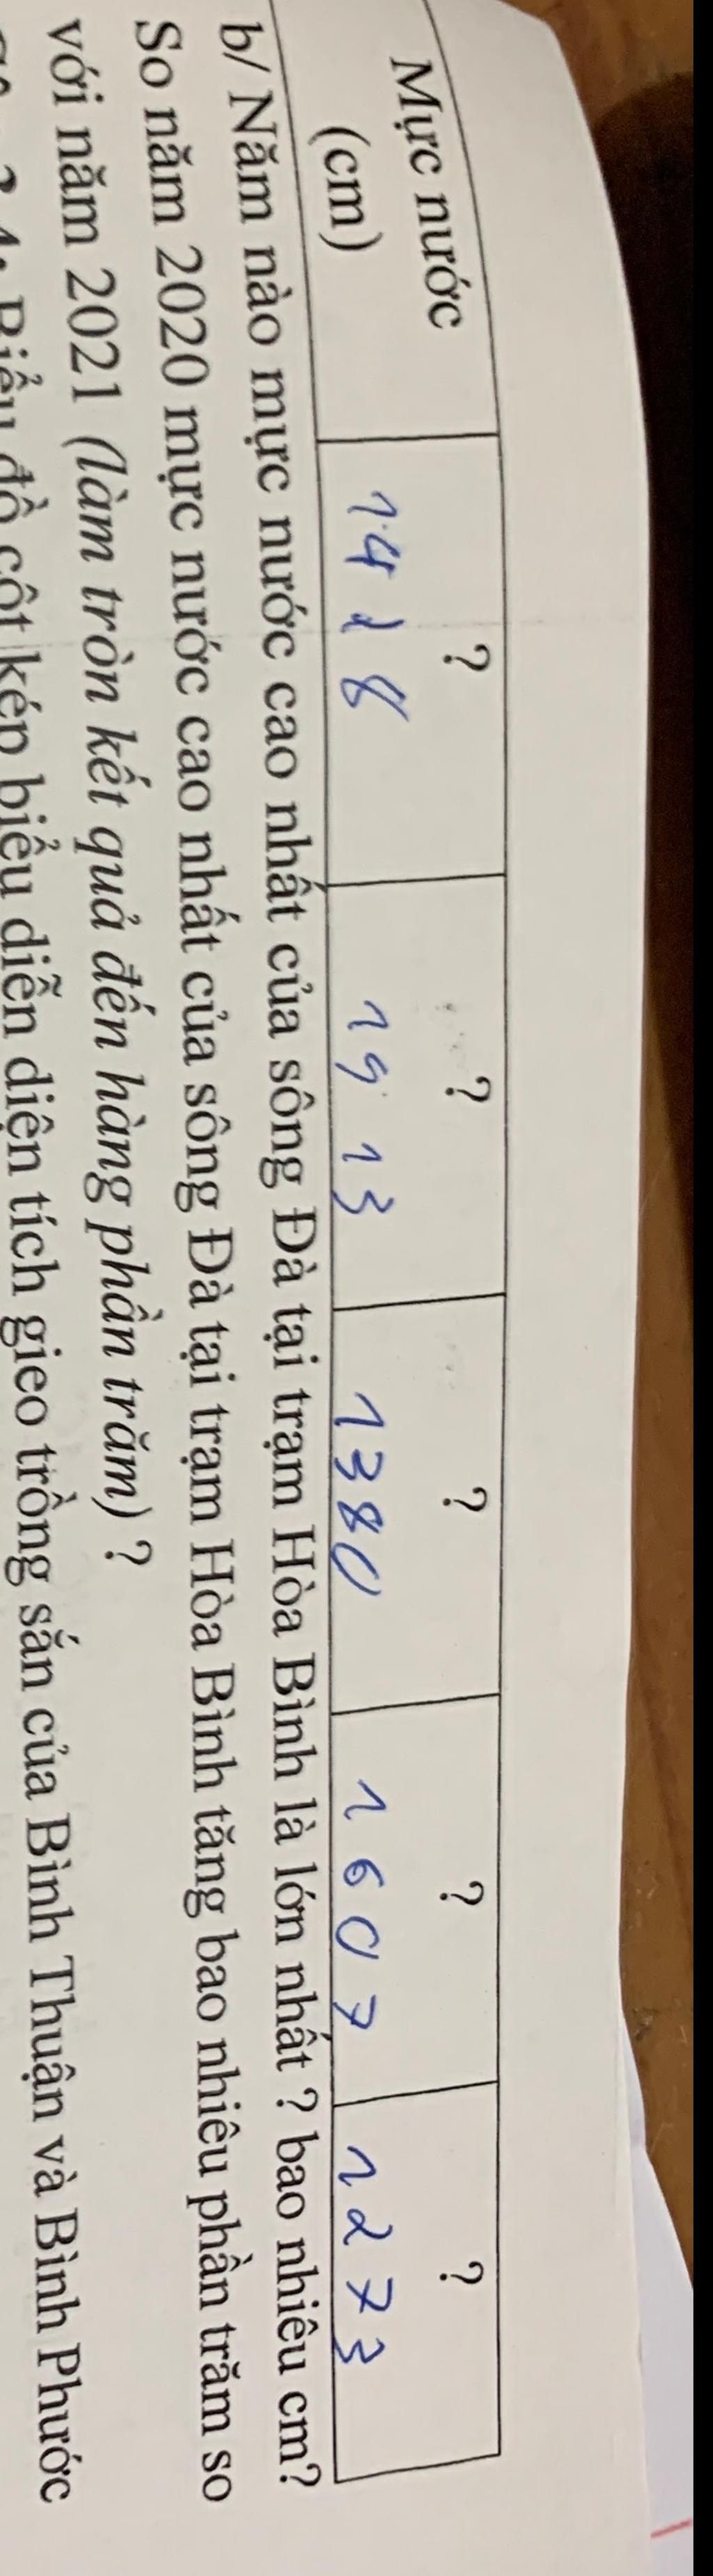 Mực nước ? ? ? ? ?
(cm) 1418 1913 1380 1607 1273
b/ Năm nào mực nước cao nhất của sông Đà tại trạm Hòa Bình là lớn nhất ? bao nhiêu cm?
So năm 2020 mực nước cao nhất của sông Đà tại trạm Hòa Bình tăng bao nhiêu phần trăm so
với năm 2021 (làm tròn kết quả đến hàng phần trăm) ?
Biểu đồ cột kép biểu diễn diện tích gieo trồng sắn của Bình Thuận và Bình Phước